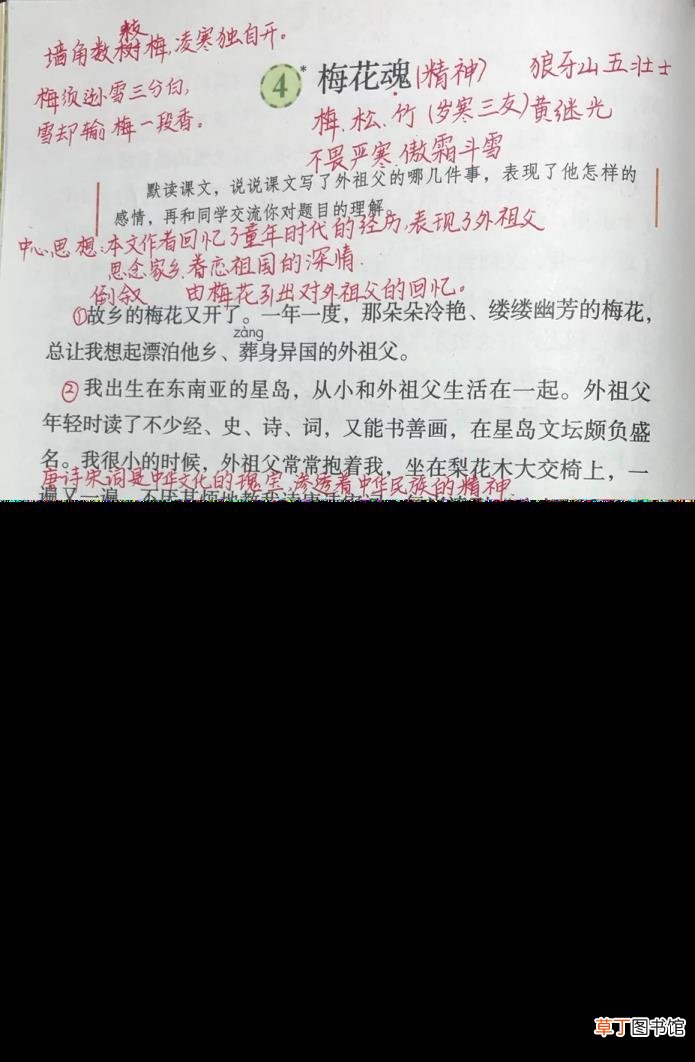 墙角数树枝梅，凌寒独自开。
梅须逊雪三分白，
雪却输梅一段香。
4* 梅花魂(精神) 狼牙山五壮士
梅、松、竹(岁寒三友) 黄继光
不畏严寒、傲霜斗雪
默读课文，说说课文写了外祖父的哪几件事，表现了他怎样的
感情，再和同学交流你对题目的理解。
中心思想：本文作者回忆了童年时代的经历，表现了外祖父
思念家乡、眷恋祖国的深情.
倒叙 由梅花引出对外祖父的回忆。
①故乡的梅花又开了。一年一度，那朵朵冷艳、缕缕幽芳的梅花，
zàng
总让我想起漂泊他乡、葬身异国的外祖父。
②我出生在东南亚的星岛，从小和外祖父生活在一起。外祖父
年轻时读了不少经、史、诗、词，又能书善画，在星岛文坛颇负盛
名。我很小的时候，外祖父常常抱着我，坐在梨花木大交椅上，一
唐诗宋词是中华文化的瑰宝，渗透着中华民族的精神
遍又一遍
草丁图书馆